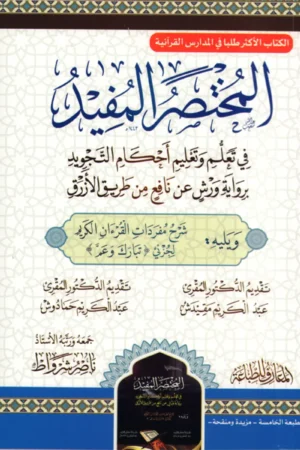 الكتاب الأكثر طلبا في المدارس القرآنية
المختصر المفيد
في تعلم وتعليم أحكام التجويد
برواية ورش عن نافع من طريق الأزرق
ويليه:
شرح مفردات القرءان الكريم
لجزئي ﴿تبارك وعم﴾
تقديم الدكتور المقرئ
عبد الكريم مقيدش
تقديم الدكتور المقرئ
عبد الكريم حمادوش
جمعه ورتبه الأستاذ
ناصر شنرواظ
المعارف للطباعة
المختصر المفيد
طبعة الخامسة - مزيدة ومنقحة -